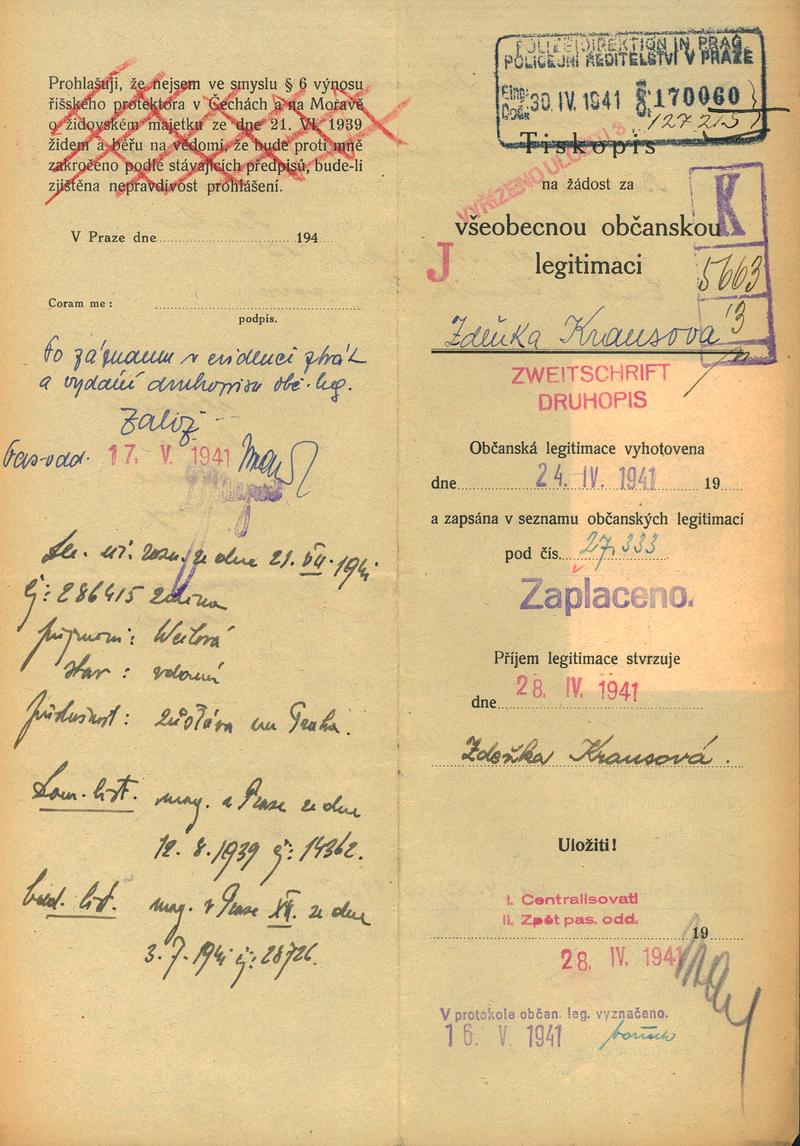 Prohlašuji, že nejsem ve smyslu § 6 výnosu
říšského protektora v Čechách a na Moravě
o židovském majetku ze dne 21. VI. 1939
židem a béřu na vědomí, že bude proti mně
zakročeno podle stávajících předpisů, bude-li
zjištěna nepravdivost prohlášení.
V Praze dne 194
Coram me:
podpis.
Po záznamu v evidenci ztrát
a vydání druhopisu obč. leg.
Založ
Pas. odd. 17. V. 1941
ze dne 21. VII. 1941
čj: 286415 změna
příjmení: Weilová
stav: vdova
příslušnost: zůstává v Praha.
Dom. list. mag. v Praze ze dne
12. 8. 1939 čj: 14362.
list. mag. v Praze XII. ze dne
3. 7. 1941 čj: 28726.
POLIZEIDIREKTION IN PRAG
POLICEJNÍ ŘEDITELSTVÍ V PRAZE
Eing.
Došlo 30. IV. 1941 170060
127215
Tiskopis
VYŘÍZENO
na žádost za
všeobecnou občanskou
legitimaci
K
J
5663
13
Zdeňka Krausová
ZWEITSCHRIFT
DRUHOPIS
Občanská legitimace vyhotovena
dne 24. IV. 1941 19
a zapsána v seznamu občanských legitimací
pod čís. 27.333
Zaplaceno.
Příjem legitimace stvrzuje
dne 28. IV. 1941
Zdeňka Krausová.
Uložiti!
I. Centralisovati
II. Zpět pas. odd.
19
28. IV. 1941
V protokole občan. leg. vyznačeno.
16. V. 1941